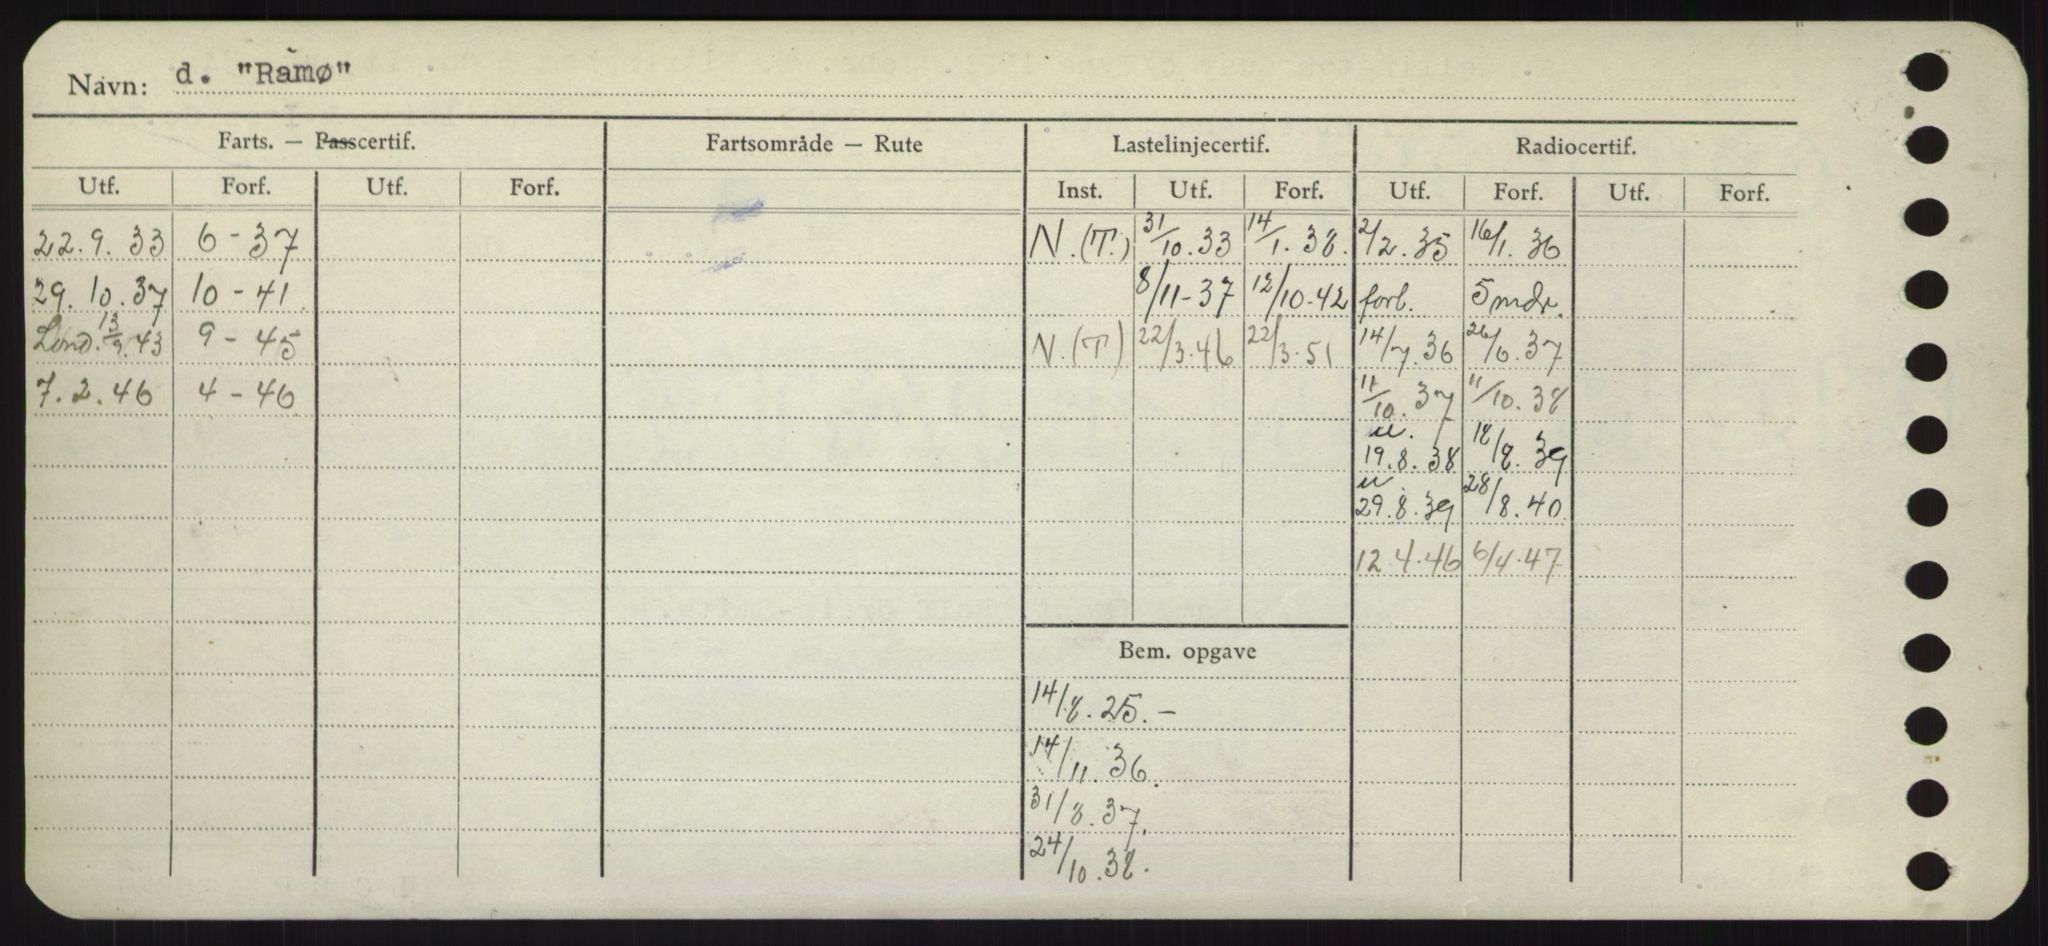 Navn: d. "Ramø"
Farts. — Passcertif. Fartsområde — Rute Lastelinjecertif. Radiocertif.
Utf. Forf. Utf. Forf. Inst. Utf. Forf. Utf. Forf. Utf. Forf.
22.9.33 6-37 N.(T.) 31/10.33 14/1.38. 2/2.35 16/1.36
29.10.37 10-41 8/11-37 12/10-42 forl. 5 mdr.
Lond. 13/9.43 9-45 N.(T) 22/3.46 22/3.51 14/7.36 26/6.37
7.2.46 4-46 11/10.37 11/10.38
u. 19.8.38 18/8.39
u. 29.8.39 28/8.40
12.4.46 6/4.47
Bem. opgave
14/8.25.-
14/11.36.
31/8.37.
24/10.38.